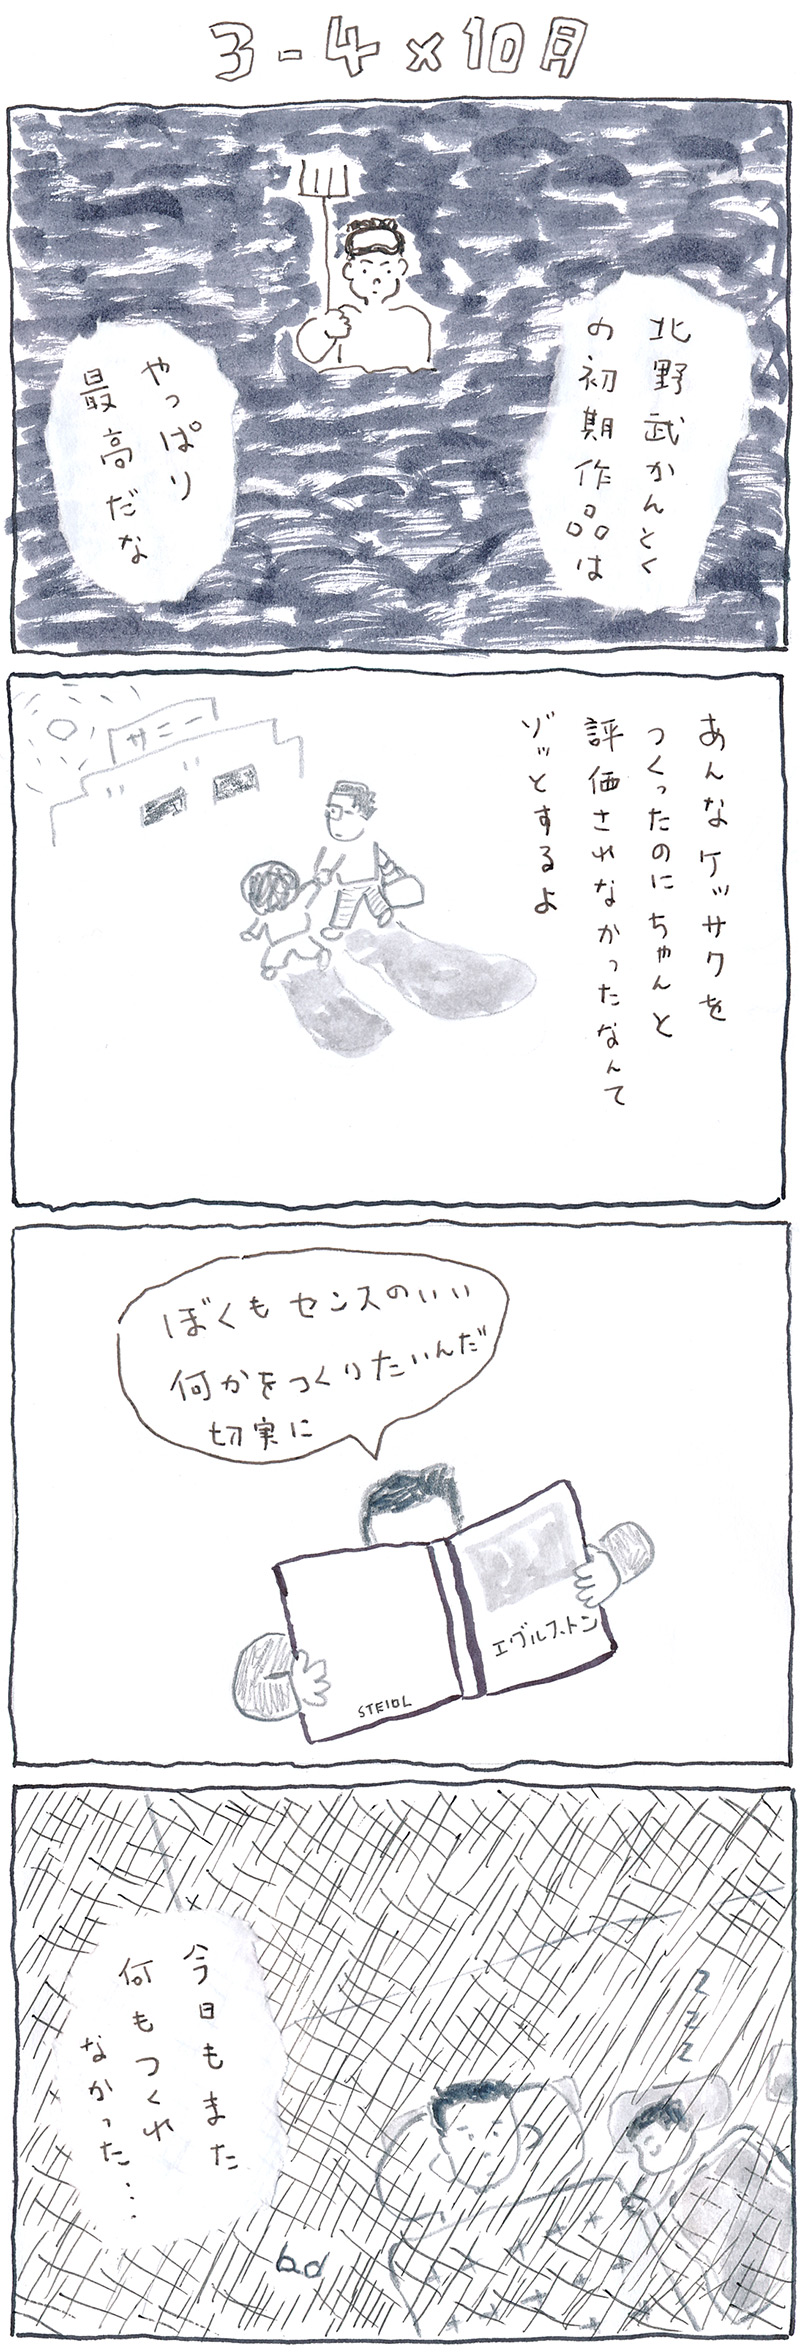 3-4×10月
北野武かんとく
の初期作品は
やっぱり
最高だな
サニー
あんなケッサクを
つくったのにちゃんと
評価されなかったなんて
ゾッとするよ
ぼくもセンスのいい
何かをつくりたいんだ
切実に
STEIDL
エグルストン
今日もまた
何もつくれ
なかった…
zzz